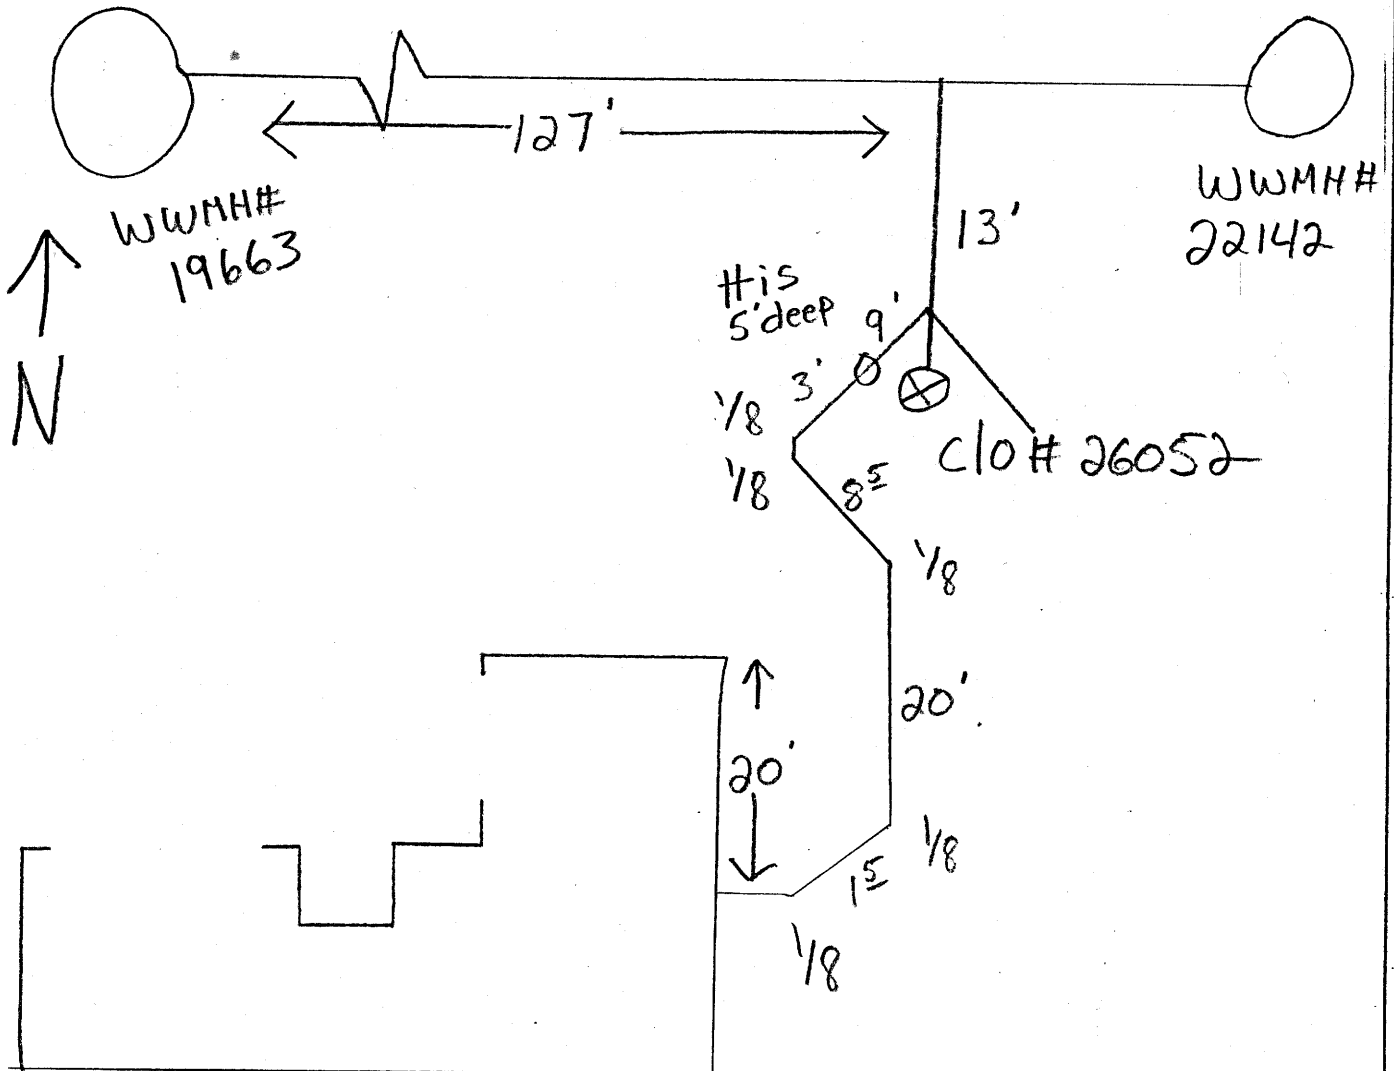 127'
WWMH#
19663
WWMH#
22142
N
13'
His
5'deep
9'
3'
1/8
1/8
8 5
C/O# 26052
1/8
20'
20'
1/8
1 5
1/8